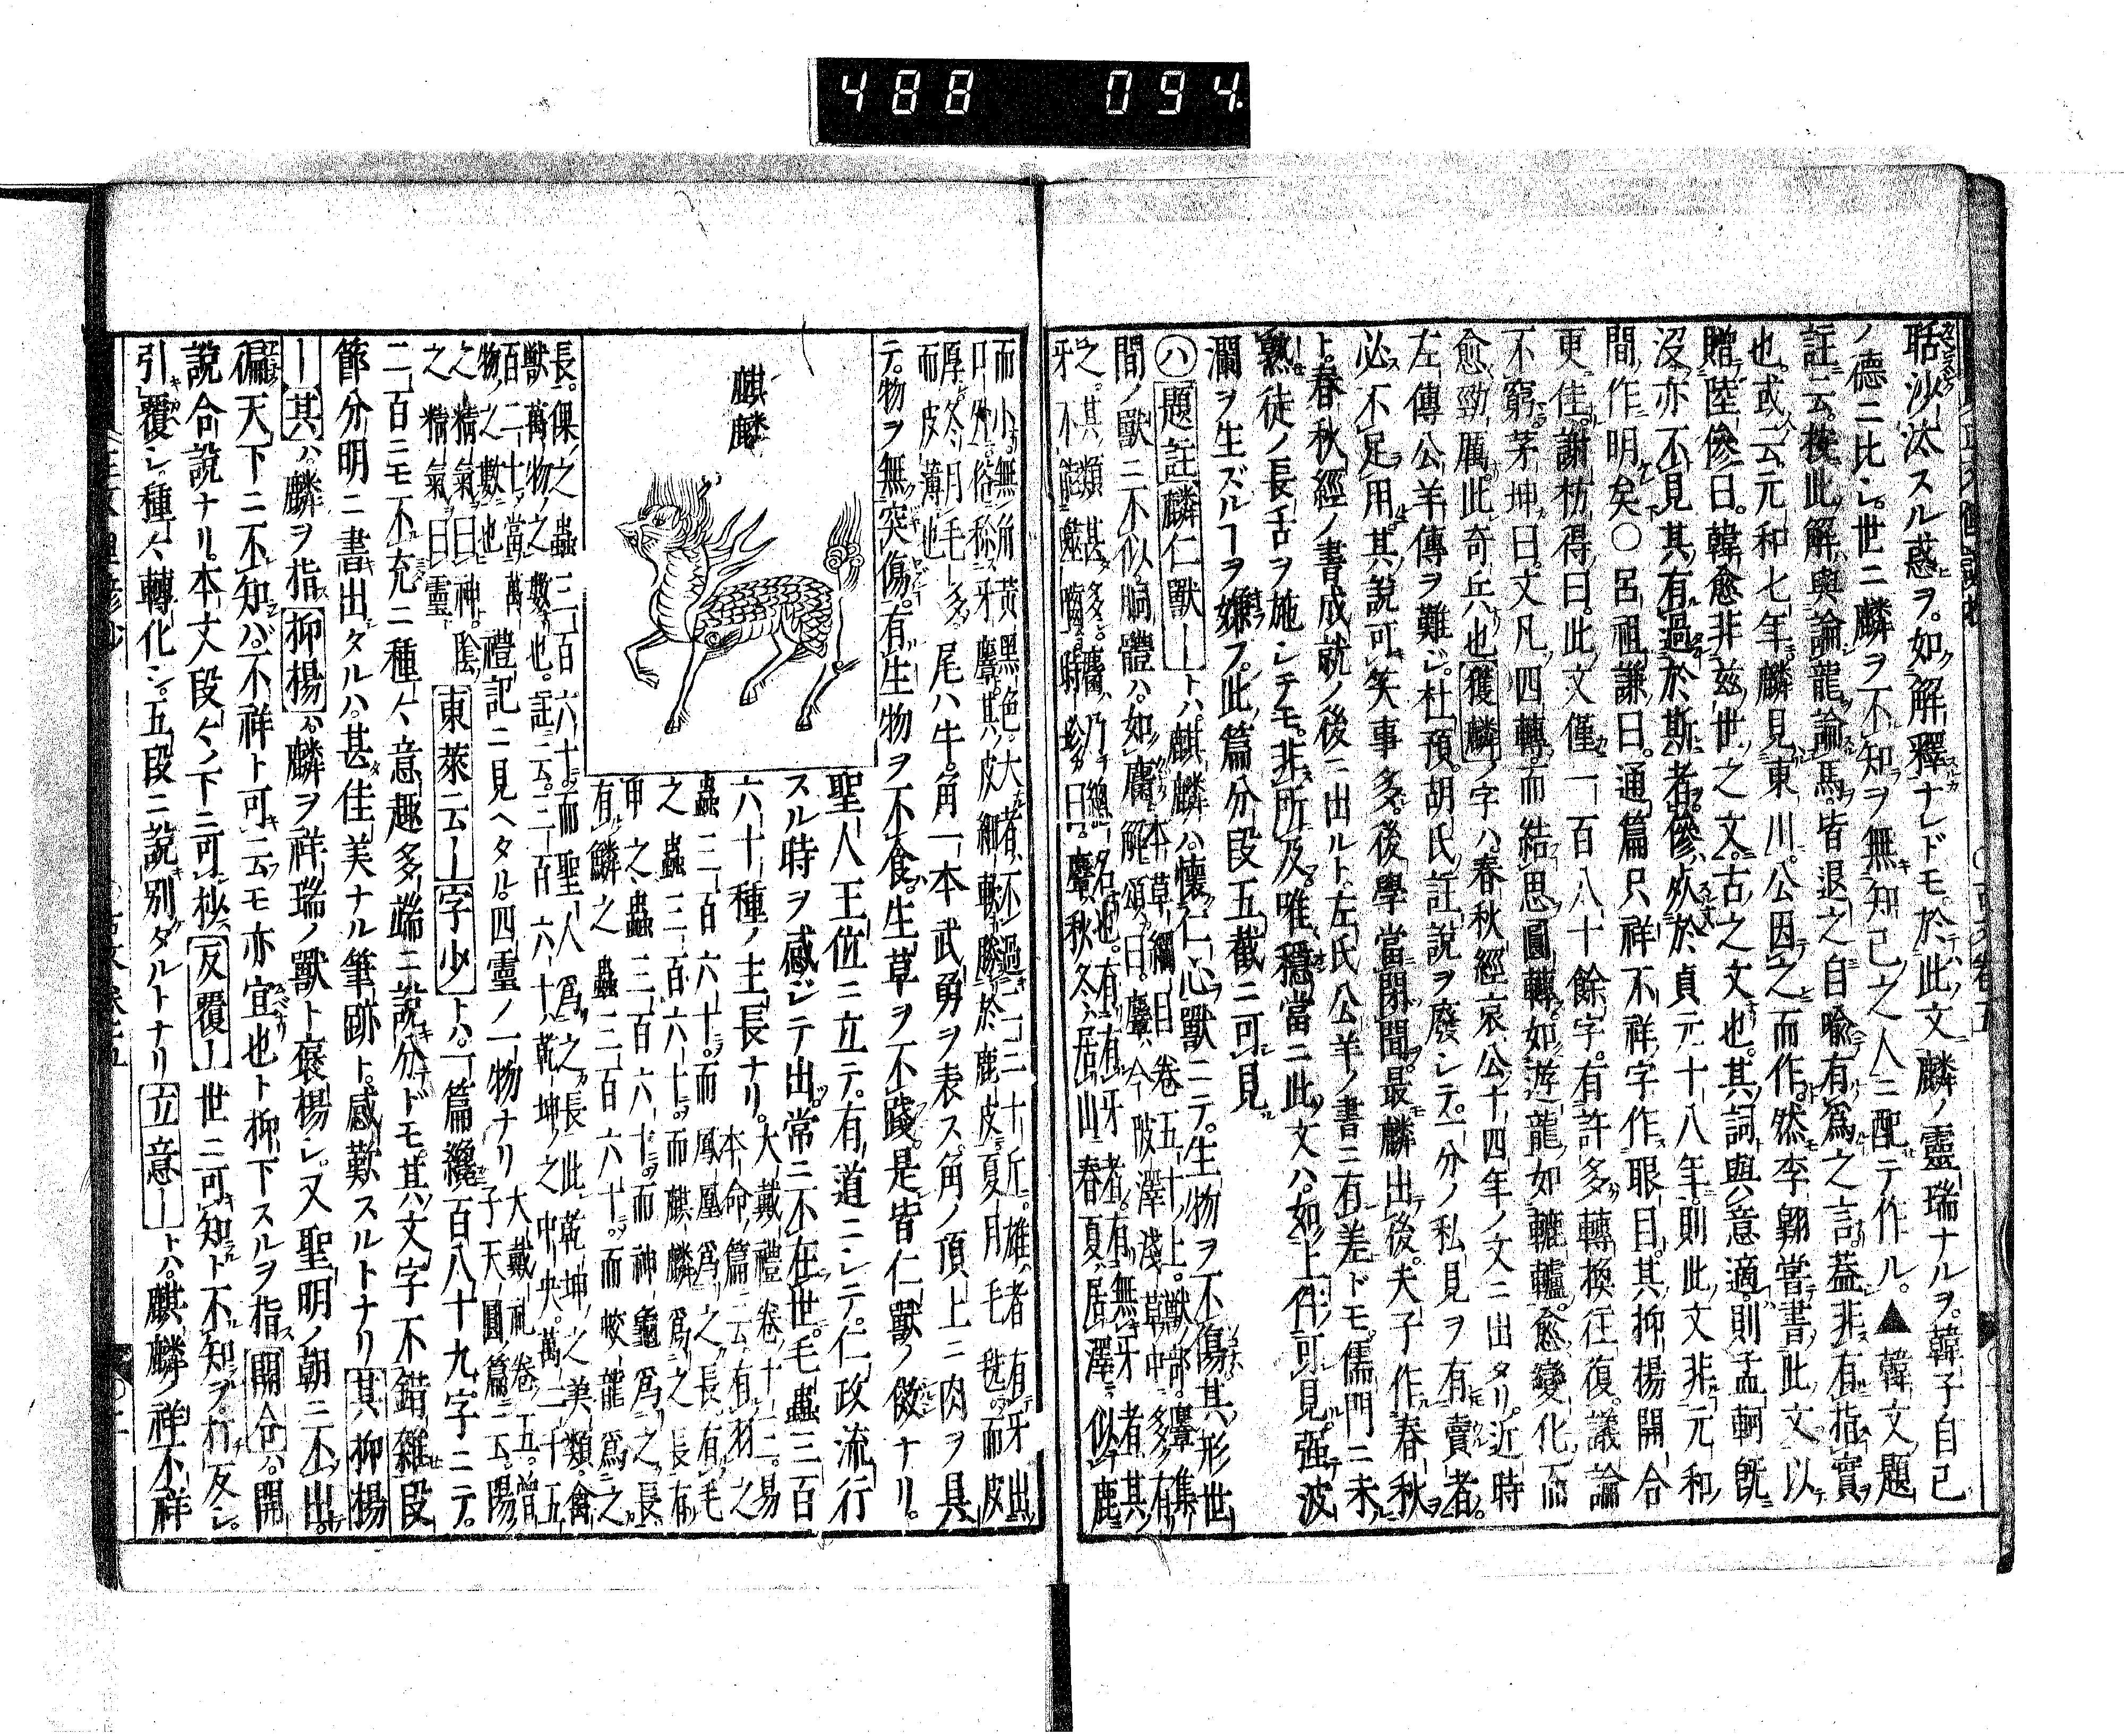 488 094
聒沙汰スル惑ヲ。如ク解釋ナレドモ。於此文麟ノ靈瑞ナルヲ。韓子自己
ノ德ニ比シ。世ニ麟ヲ不知ヲ無知己之人ニ配テ作ル。▲韓文題
註云。按此解與論龍論馬。皆退之自喩有爲之言。葢非有指實
也。或云元和七年。麟見東川。公因之而作。然李翺嘗書此文以
贈陸傪曰。韓愈非茲世之文。古之文也。其詞與意適。則孟軻旣
沒。亦不見其有過於斯者。傪歿於貞元十八年。則此文非元和
間作明矣〇呂祖謙曰。通篇只祥不祥字作眼目。其抑揚開合
更佳。謝枋得曰。此文僅一百八十餘字。有許多轉換往復。議論
不窮。茅坤曰。文凡四轉。而結思圓轉。如遊龍如轆轤。愈變化而
愈勁厲。此奇兵也獲麟ノ字ハ春秋經哀公十四年ノ文ニ出タリ。近時
左傳公羊傳ヲ難ジ。杜預胡氏註說ヲ廢シテ。一分ノ私見ヲ有賣者。
必不足用。其說可笑事多。後學當閉聞。最麟出後。夫子作春秋
ト。春秋經ノ書成就ノ後ニ出ルト。左氏公羊ノ書ニ有差ドモ。儒門ニ未
熟徒ノ長舌ヲ施シテモ。非所及。唯穩當ニ此文ハ。如上件可見。强波
瀾ヲ生ズルヿヲ嫌フ。此篇分段五截ニ可見
ハ題註麟仁獸ートハ。麒麟ハ懷仁心獸ニテ。生物ヲ不傷。其形世
間ノ獸ニ不似。胴體ハ。如麕
本草綱目卷五十一上。獸ノ部。麞集
解頌曰。麞今陂澤淺草中多有
之。其類甚多。麕乃總名也。有有牙者。有無牙者。其
牙不能噬嚙。時珍曰。麞秋冬居山。春夏居澤。似鹿
而小無角。黃黑色。大者不過二三十斤。雄者有牙出
口外。俗稱牙麞。其皮細軟。勝於鹿皮。夏月毛毨而皮
厚。冬月毛多
而皮薄也
尾ハ牛。角一本武勇ヲ表ス。角ノ頂上ニ肉ヲ具
テ。物ヲ無突傷。有生物ヲ不食。生草ヲ不踐。是皆仁獸ノ徴ナリ。
麒麟
聖人王位ニ立テ。有道ニシテ。仁政流行
スル時ヲ感ジテ出。常ニ不在世。毛蟲三百
六十種ノ主長ナリ。
大戴禮卷十三。易
本命篇云。有羽之
蟲三百六十。而鳳凰爲之長。有毛
之蟲三百六十。而麒麟爲之長。有
甲之蟲三百六十。而神龜爲之長。
有鱗之蟲三百六十。而蛟龍爲之
長。倮之蟲三百六十。而聖人爲之長。此乾坤之美類。禽
獸萬物之數也。註云。三百六十。乾坤之中央。萬二千五
百二十。當萬
物之數也
禮記ニ見ヘタル。四靈ノ一物ナリ
大戴禮卷五。曾
子天圓篇云。陽
之精氣曰神。陰
之精氣曰靈
東萊云ー字少トハ。一篇纔百八十九字ニテ。
二百ニモ不充ニ種〻意趣多端ニ說分ドモ。其文字不錯雜。段
節分明ニ書出タルハ。甚佳美ナル筆跡ト。感歎スルトナリ其抑揚
ー其ハ麟ヲ指抑揚ハ麟ヲ祥瑞ノ獸ト襃揚シ。又聖明ノ朝ニ不出。
偏天下ニ不知ハ。不祥ト可云モ亦宜也ト抑下スルヲ指開合ハ開
說合說ナリ。本文段〻ノ下ニ可校反覆ー世ニ可知ト不知ヲ。打反シ。
引覆シ。種〻轉化シ。五段ニ說別タルトナリ立意ートハ。麒麟ノ祥不祥